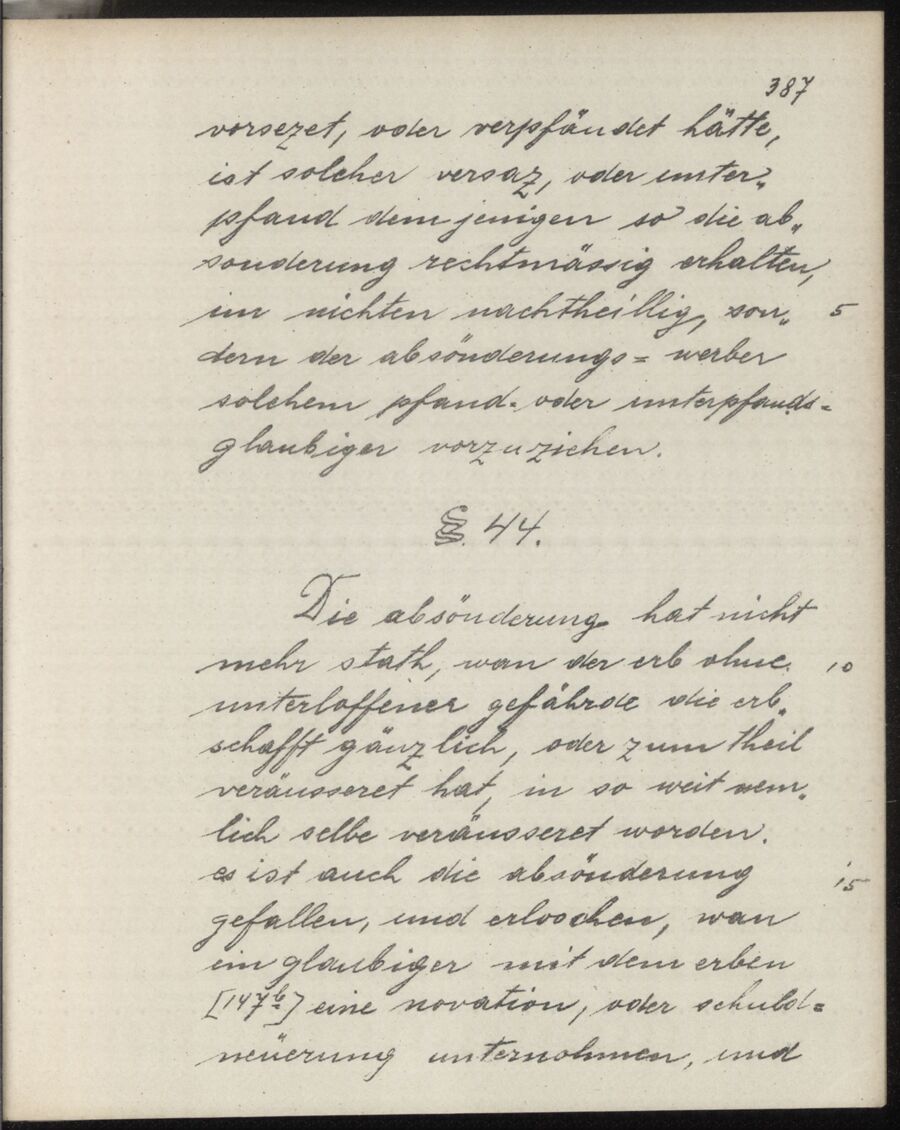 387
vorsezet, oder verpfändet hätte,
ist solcher versaz, oder unter„
pfand demjenigen so die ab„
sonderung rechtmässig erhalten,
im nichten nachtheillig, son„ 5
dern der absönderungs= werber
solchem pfand= oder unterpfands=
glaubiger vorzuziehen.
§. 44.
Die absönderung hat nicht
mehr stath, wan der erb ohne 10
unterloffener gefährde die erb„
schafft gänzlich, oder zum theil
veräusseret hat, in so weit nem„
lich selbe veräusseret worden.
es ist auch die absönderung 15
gefallen, und erloschen, wan
ein glaubiger mit dem erben
[147b] eine novation, oder schuld=
neüerung unternohmen, und